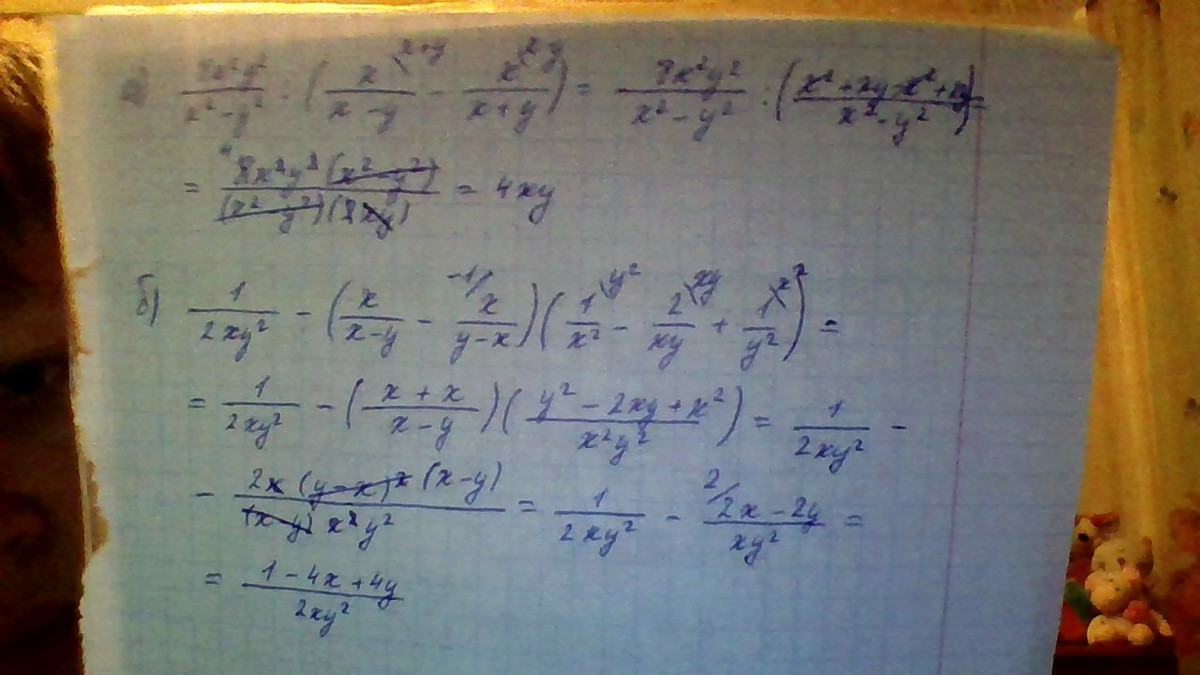 а) 8x²y²/(x²-y²) : (x/(x-y) \x+y - x/(x+y) \x-y) = 8x²y²/(x²-y²) : ((x²+xy-x²+xy)/(x²-y²)) =
= 8x²y²(x²-y²)/((x²-y²)(2xy)) = 4xy
б) 1/(2xy²) - (x/(x-y) - -1/ x/(y-x))(1/x² \y² - 2/(xy) \xy + 1/y² \x²) =
= 1/(2xy²) - ((x+x)/(x-y))((y²-2xy+x²)/(x²y²)) = 1/(2xy²) -
- 2x(y-x)²(x-y)/((x-y)x²y²) = 1/(2xy²) - 2/ (2x-2y)/(xy²) =
= (1-4x+4y)/(2xy²)